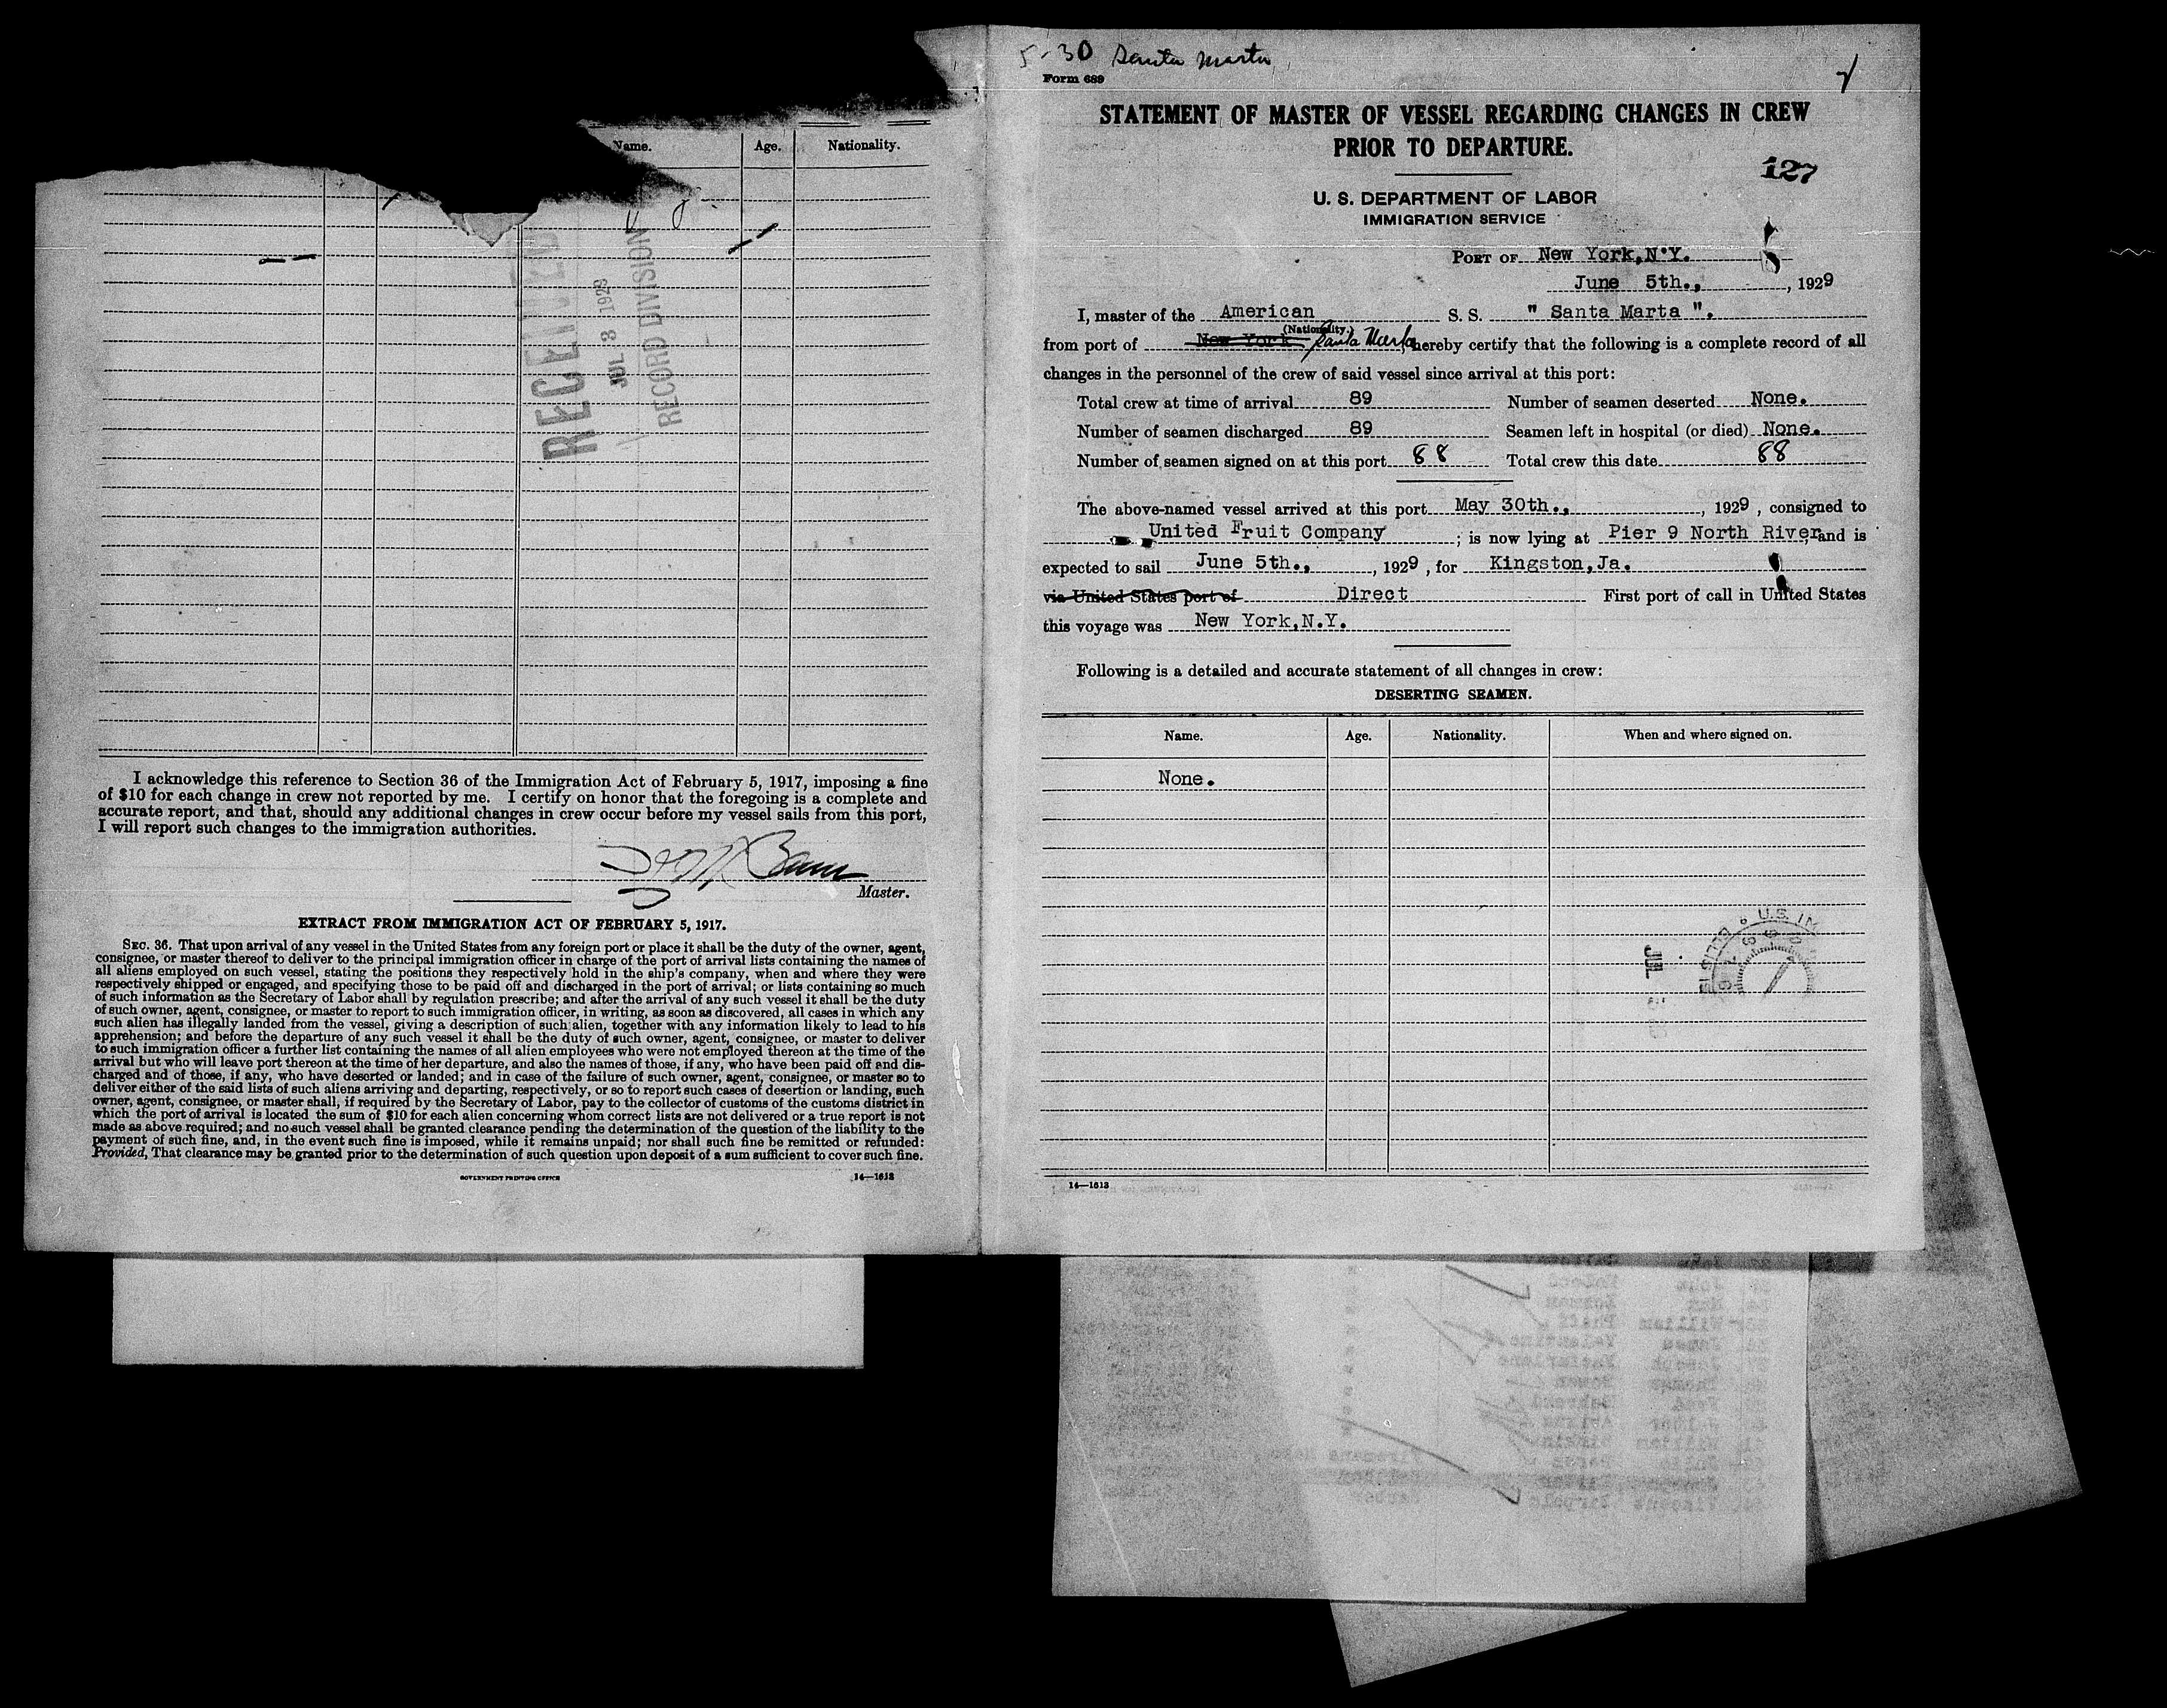 Name. Age. Nationality.
RECEIVED
JUL 3 1929
RECORD DIVISION
I acknowledge this reference to Section 36 of the Immigration Act of February 5, 1917, imposing a fine
of $10 for each change in crew not reported by me. I certify on honor that the foregoing is a complete and
accurate report, and that, should any additional changes in crew occur before my vessel sails from this port,
I will report such changes to the immigration authorities.
Master.
EXTRACT FROM IMMIGRATION ACT OF FEBRUARY 5, 1917.
SEC. 36. That upon arrival of any vessel in the United States from any foreign port or place it shall be the duty of the owner, agent,
consignee, or master thereof to deliver to the principal immigration officer in charge of the port of arrival lists containing the names of
all aliens employed on such vessel, stating the positions they respectively hold in the ship's company, when and where they were
respectively shipped or engaged, and specifying those to be paid off and discharged in the port of arrival; or lists containing so much
of such information as the Secretary of Labor shall by regulation prescribe; and after the arrival of any such vessel it shall be the duty
of such owner, agent, consignee, or master to report to such immigration officer, in writing, as soon as discovered, all cases in which any
such alien has illegally landed from the vessel, giving a description of such alien, together with any information likely to lead to his
apprehension; and before the departure of any such vessel it shall be the duty of such owner, agent, consignee, or master to deliver
to such immigration officer a further list containing the names of all alien employees who were not employed thereon at the time of the
arrival but who will leave port thereon at the time of her departure, and also the names of those, if any, who have been paid off and dis-
charged and of those, if any, who have deserted or landed; and in case of the failure of such owner, agent, consignee, or master so to
deliver either of the said lists of such aliens arriving and departing, respectively, or so to report such cases of desertion or landing, such
owner, agent, consignee, or master shall, if required by the Secretary of Labor, pay to the collector of customs of the customs district in
which the port of arrival is located the sum of $10 for each alien concerning whom correct lists are not delivered or a true report is not
made as above required; and no such vessel shall be granted clearance pending the determination of the question of the liability to the
payment of such fine, and, in the event such fine is imposed, while it remains unpaid; nor shall such fine be remitted or refunded:
Provided, That clearance may be granted prior to the determination of such question upon deposit of a sum sufficient to cover such fine.
GOVERNMENT PRINTING OFFICE 14—1613
5-30 Santa Marta
Form 689
STATEMENT OF MASTER OF VESSEL REGARDING CHANGES IN CREW
PRIOR TO DEPARTURE.
127
U. S. DEPARTMENT OF LABOR
IMMIGRATION SERVICE
PORT OF New York, N.Y.
June 5th., , 1929
I, master of the American S. S. " Santa Marta ".
(Nationality.)
from port of New York Santa Marta, hereby certify that the following is a complete record of all
changes in the personnel of the crew of said vessel since arrival at this port:
Total crew at time of arrival 89 Number of seamen deserted None.
Number of seamen discharged 89 Seamen left in hospital (or died) None.
Number of seamen signed on at this port 88 Total crew this date 88
The above-named vessel arrived at this port May 30th., , 1929 , consigned to
United Fruit Company ; is now lying at Pier 9 North River, and is
expected to sail June 5th., , 1929 , for Kingston, Ja.
via United States port of Direct First port of call in United States
this voyage was New York, N.Y.
Following is a detailed and accurate statement of all changes in crew:
DESERTING SEAMEN.
Name. Age. Nationality. When and where signed on.
None.
U.S. IM
JUL
14—1613